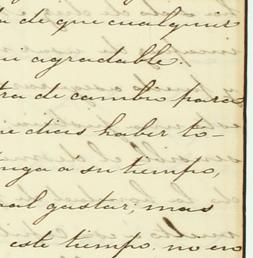 a de que cualquier
i agradable.
tra de cambio para
e dias haber to-
nga a su tiempo,
nal gastar; mas
este tiempo no en